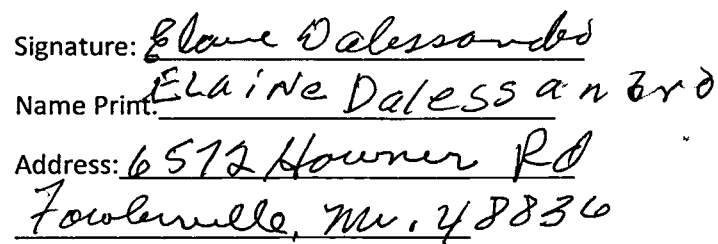 Signature: Elaine Dalessandro
Name Print: ELaiNe Dalessandro
Address: 6572 Rd
Fowlerville, Mi. 48836